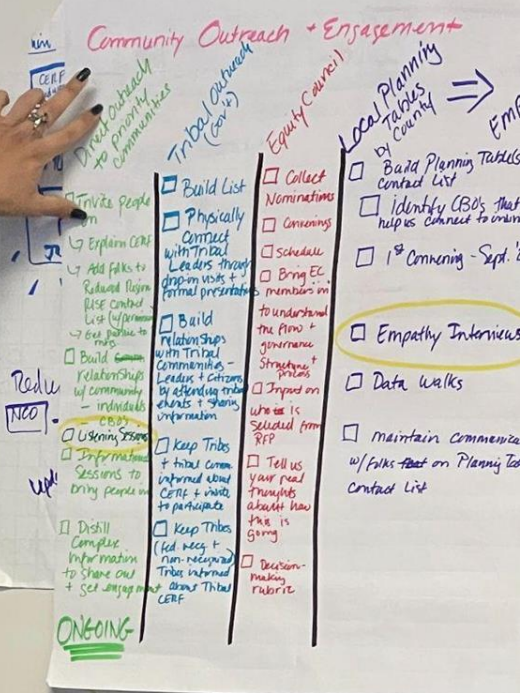 Community Outreach + Engagement
CERF
Redu
NCO
upd
Direct Outreach
to priority
communities
Invite people
↳ Explain CERF
↳ Add folks to
Redwood Region
RISE Contact
List
↳ Get people to
Build
relationships
w/community
- individuals
CBO's
Listening Sessions
Informational
Sessions to
bring people in
Distill
Complex
Information
to share out
+ get engagement
ONGOING
Tribal Outreach
(Gov't)
Build List
Physically
Connect
with Tribal
Leaders through
drop-in visits +
formal presentations
Build
relationships
with Tribal
Communities -
Leaders + Citizens
by attending tribal
events + sharing
information
Keep Tribes
+ tribal comm.
informed about
CERF + invite
to participate
Keep Tribes
(fed. recg. +
non-recognized)
Tribes informed
about Tribal
CERF
Equity Council
Collect
Nominations
Convenings
Schedule
Bring EC
members in
to understand
the flow +
governance
Structure +
process
Input on
who is
selected from
RFP
Tell us
your real
thoughts
about how
this is
going
Decision-
making
rubric
Local Planning
Tables
by
County
⇒
Build Planning Tables
contact List
identify CBO's that
help us connect to
1st Convening - Sept.
Empathy Interviews
Data Walks
maintain
w/folks on Planning
contact List